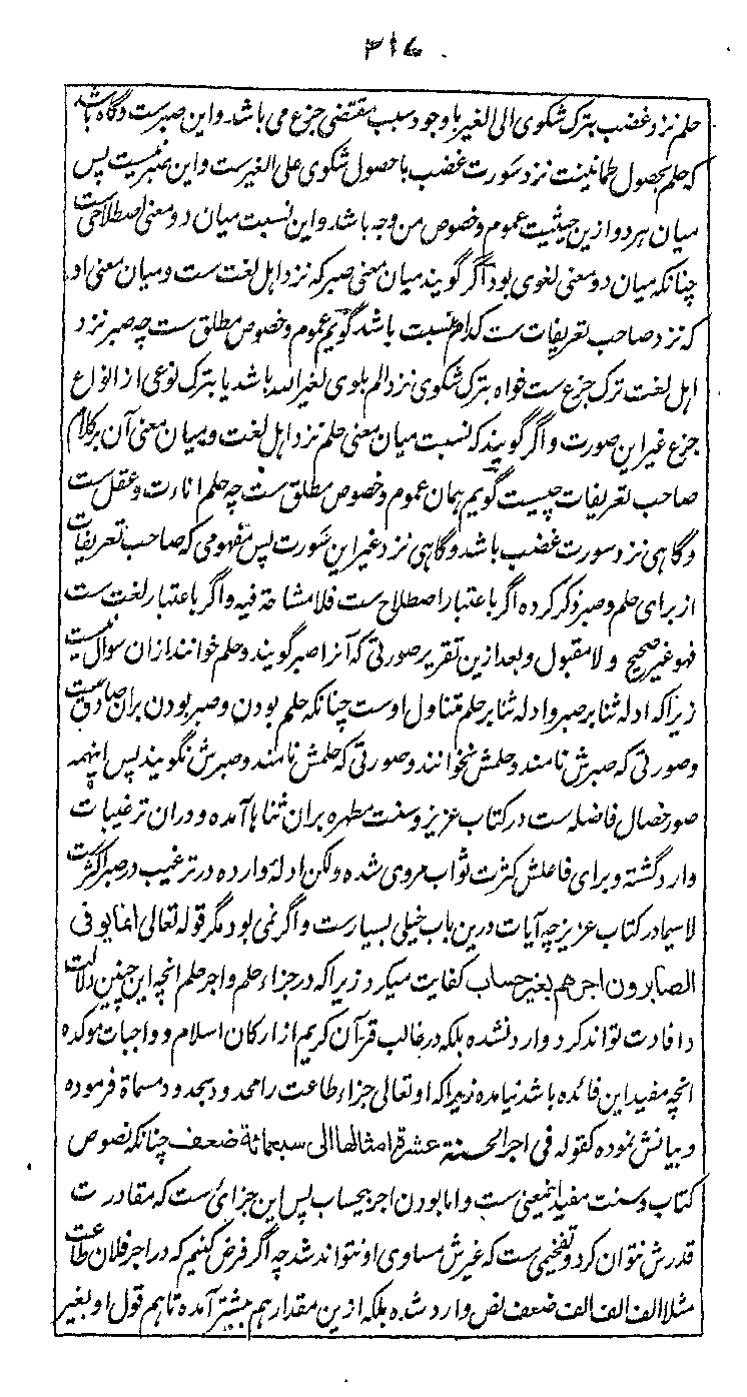 ۳۱۷
حلم نزد غضب بترک شکوی الی الغیر با وجود سبب مقتضی جزع می باشد و این صبر ست و گاه باشد
که حلم بحصول طمانینت نزد سَورت غضب با حصول شکوی علی الغیر ست و این صبر نیست پس
میان هر دو ازین حیثیت عموم و خصوص من وجه باشد و این نسبت میان دو معنی اصطلاحی ست
چنانکه میان دو معنی لغوی بود اگر گویند میان معنی صبر که نزد اهل لغت ست و میان معنی او
که نزد صاحب تعریفات ست کدام نسبت باشد گویم عموم و خصوص مطلق ست چه صبر نزد
اهل لغت ترک جزع ست خواه بترک شکوی نزد الم بلوی لغیر الله باشد یا بترک نوعی از انواع
جزع غیر این صورت و اگر گویند که نسبت میان معنی حلم نزد اهل لغت و میان معنی آن بر کلام
صاحب تعریفات چیست گویم همان عموم و خصوص مطلق ست چه حلم اناءت و عقل ست
و گاهی نزد سورت غضب باشد و گاهی نزد غیر این سَورت پس مفهومی که صاحب تعریفات
از برای حلم و صبر ذکر کرده اگر باعتبار اصطلاح ست فلا مشاحة فیه و اگر باعتبار لغت ست
فهو غیر صحیح و لا مقبول و بعد ازین تقریر صورتی که آنرا صبر گویند و حلم خوانند ازان سوال نیست
زیرا که ادله ثنا بر صبر و ادله ثنا بر حلم متناول اوست چنانکه حلم بودن و صبر بودن بران صادق ست
و صورتی که صبرش نامند و حلمش نخوانند و صورتی که حلمش نامند و صبرش نگویند پس اینهمه
صور خصال فاضله ست در کتاب عزیز و سنت مطهره بران ثناها آمده و دران ترغیبات
وارد گشته و برای فاعلش کثرت ثواب مروی شده ولکن ادلهٔ وارده در ترغیب در صبر اکثرست
لا سیما در کتاب عزیز چه آیات درین باب خیلی بسیارست و اگر نمی بود مگر قوله تعالی انما یوفی
الصابرون اجرهم بغیر حساب کفایت میکرد زیرا که در جزاء حلم و اجر حلم انچه این چنین دلالت
و افادت تواند کرد وارد نشده بلکه در غالب قرآن کریم از ارکان اسلام و واجبات موکده
انچه مفید این فائده باشد نیامده زیرا که او تعالی جزاء طاعت را محدود بحدود مسماة فرموده
و بیانش نموده کقوله فی اجر الحسنة عشرة امثالها الی سبعمائة ضعف چنانکه نصوص
کتاب و سنت مفید اینمعنی ست و اما بودن اجر بیحساب پس این جزائی ست که مقادرت
قدرش نتوان کرد و تفخیمی ست که غیرش مساوی او نتواند شد چه اگر فرض کنیم که در اجر فلان طاعت
مثلا الف الف الف ضعف نص وارد شده بلکه ازین مقدار هم بیشتر آمده تاهم قول او بغیر